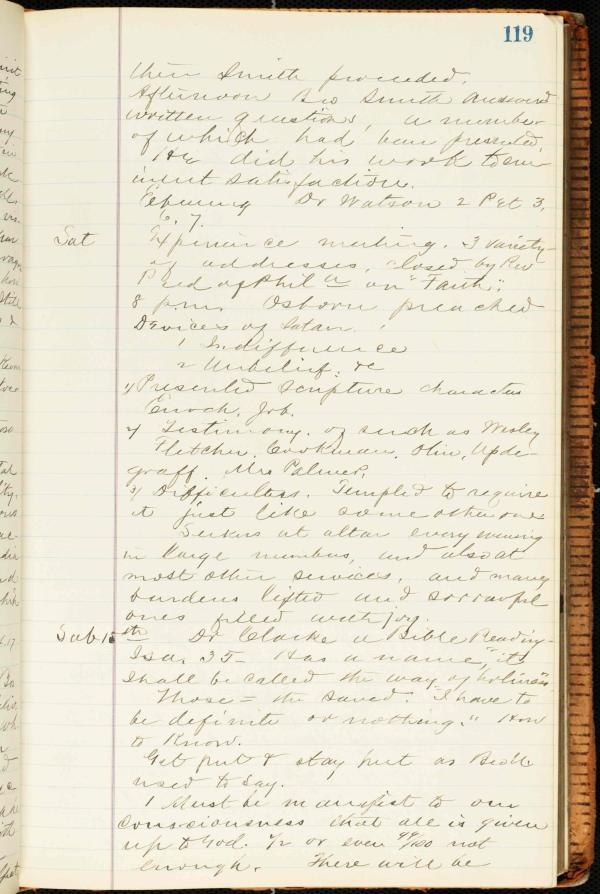 119
then Smith proceeded.
Afternoon Bro Smith answered
written questions, a number
of which had been presented.
He did his work to em-
inent satisfaction.
Evening Dr Watson 2 Pet 3.
6, 7.
Sat Experience meeting. 3 variety
of addresses, closed by Rev
Reed of Phila on "Faith".
8 p.m. Osborn preached
Devices of Satan.
1 Indifference
2 Unbelief. &c
1/ Presented Scripture characters
Enoch, Job.
2/ Testimony. of such as Wesley
Fletcher, Cookman, Olin, Upde-
graff, Mrs Palmer.
3/ Difficulties. Tempted to require
it just like some other one
Seekers at altar every evening
in large numbers, and also at
most other services, and many
burdens lifted and sorrowful
ones filled with joy.
Sab 15th Dr Clarke a Bible Reading-
Isa. 35- Has a name, "it
shall be called the way of holiness".
Those = the saved. "I have to
be definite or nothing." How
to Know.
Get put & stay put as
used to say.
1 Must be manifest to our
consciousness that all is given
up to God. 1/2 or even 99/100 not
enough. There will be